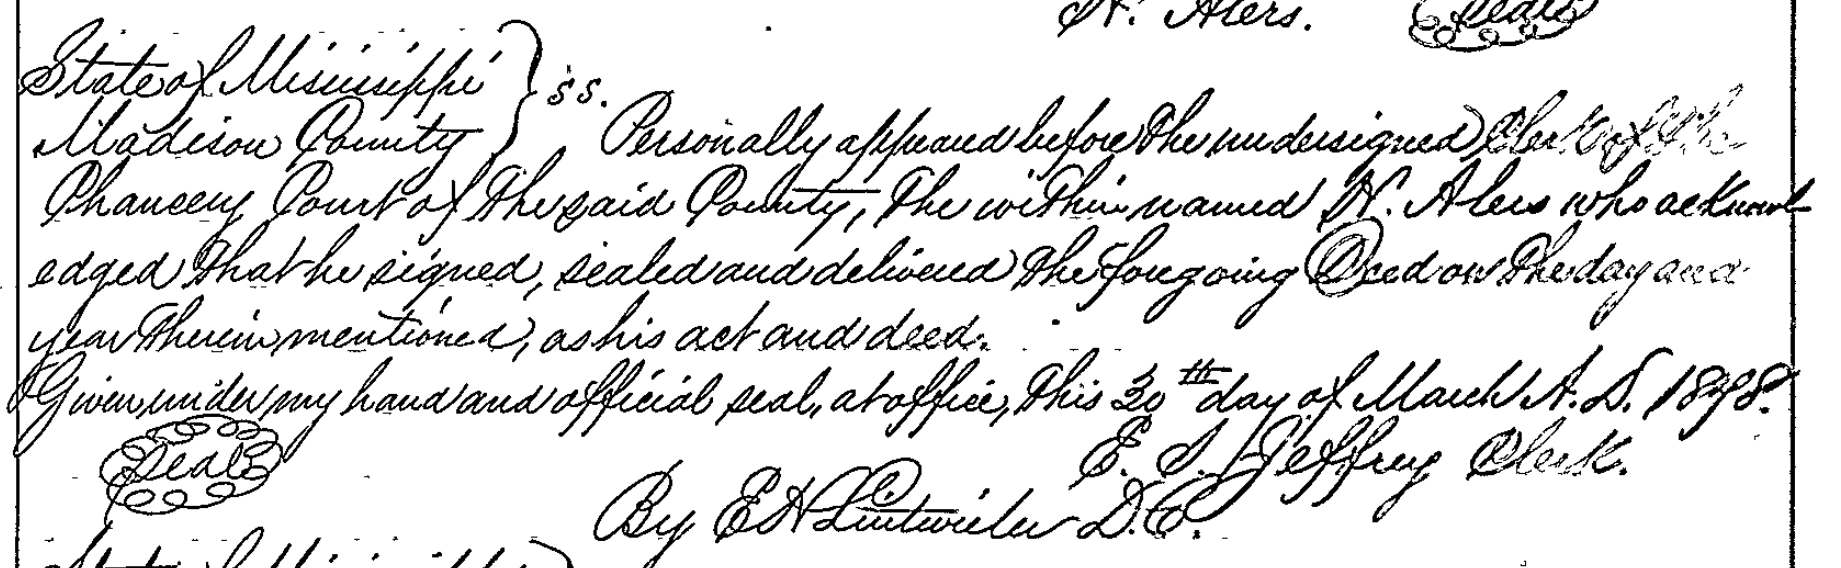 N. Alers. Seal
State of Mississippi } ss.
Madison County } Personally appeared before the undersigned Clerk of the
Chancery Court of the said County, the within named N. Alers who acknowl
edged that he signed, sealed and delivered the foregoing Deed on the day and
year therein mentioned, as his act and deed.
Given under my hand and official seal, at office, this 30th day of March A. D. 1898.
Seal E. S. Jeffrey Clerk.
By E H Lintwiler D.C.
State of Mississippi }